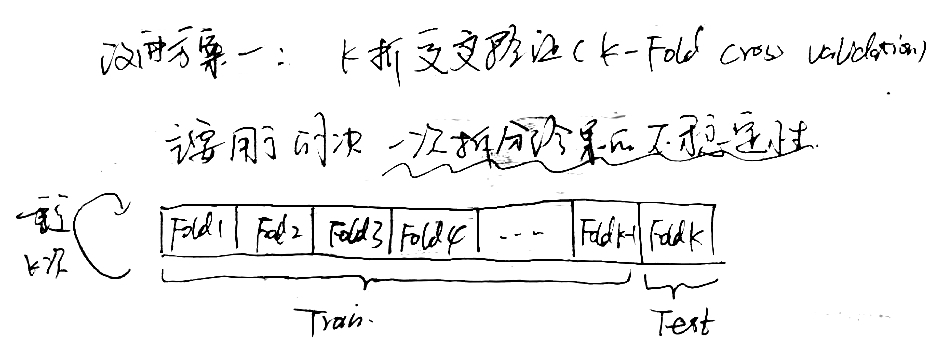 改进方案一: K折交叉验证(K-Fold cross validation)
主要用于解决一次拆分结果的不稳定性
重复
K次
Fold1 Fold2 Fold3 Fold4 ---- Foldk-1 Foldk
Train. Test